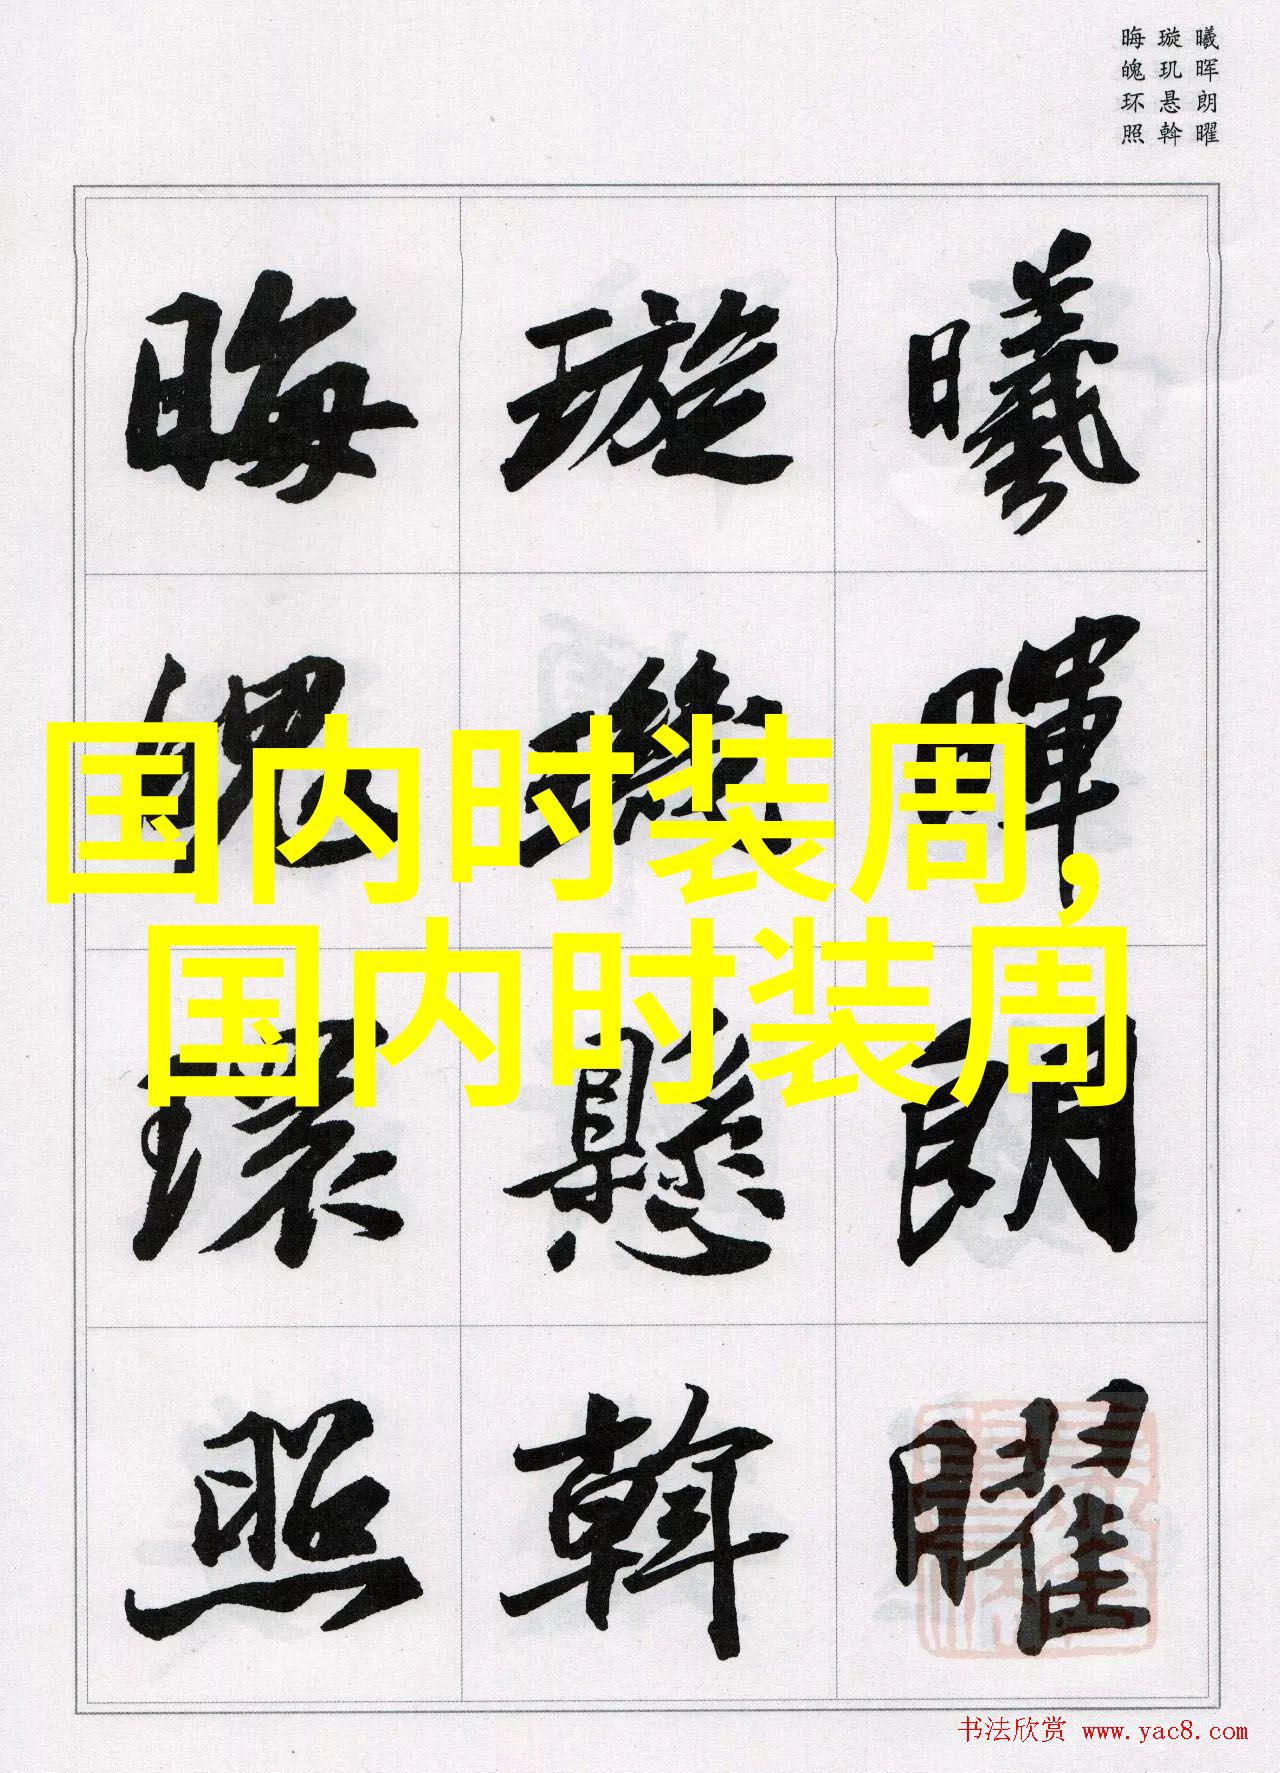 曦晖朗曜
璇玑悬斡
晦魄环照
曦暉朗曜
璇璣懸斡
晦魄環照
国内时装周,
国内时装周
书法欣赏 www.yac8.com